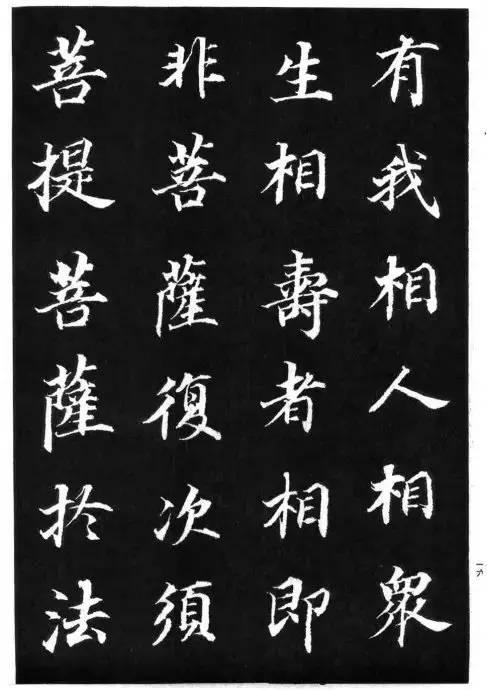 有我相人相衆
生相壽者相即
非菩薩復次須
菩提菩薩於法